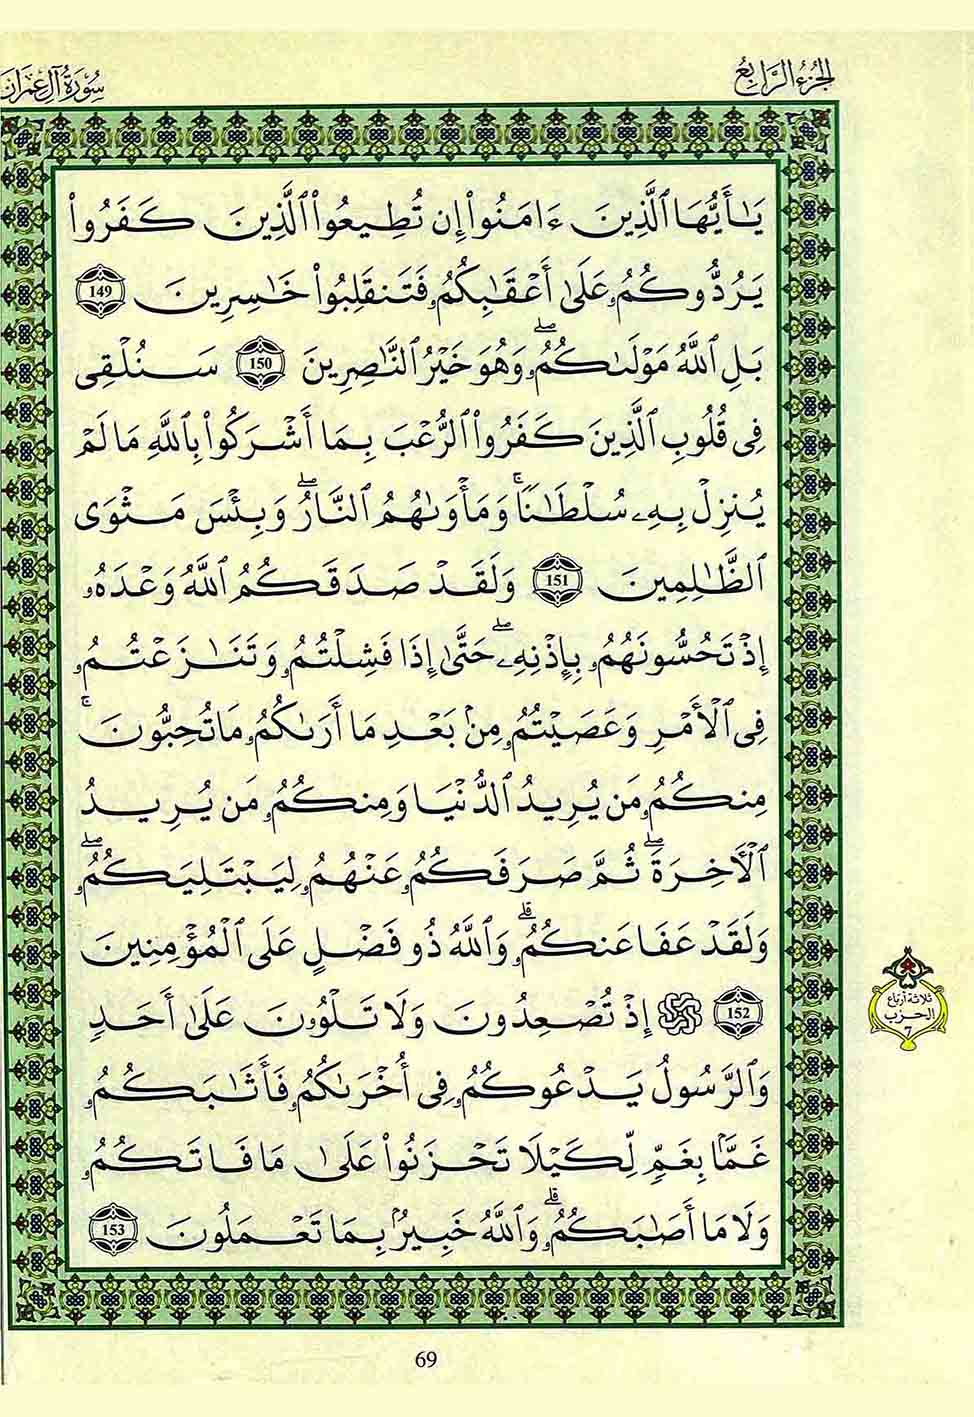 الجزء الرابع
سورة آل عمران
يَٰٓأَيُّهَا ٱلَّذِينَ ءَامَنُوٓا۟ إِن تُطِيعُوا۟ ٱلَّذِينَ كَفَرُوا۟
يَرُدُّوكُمُۥ عَلَىٰٓ أَعْقَٰبِكُمُۥ فَتَنقَلِبُوا۟ خَٰسِرِينَ 149
بَلِ ٱللَّهُ مَوْلَىٰكُمُۥ ۖ وَهُوَ خَيْرُ ٱلنَّٰصِرِينَ 150 سَنُلْقِى
فِى قُلُوبِ ٱلَّذِينَ كَفَرُوا۟ ٱلرُّعْبَ بِمَآ أَشْرَكُوا۟ بِٱللَّهِ مَا لَمْ
يُنزِلْ بِهِۦ سُلْطَٰنًا ۚ وَمَأْوَىٰهُمُ ٱلنَّارُ ۖ وَبِئْسَ مَثْوَى
ٱلظَّٰلِمِينَ 151 وَلَقَدْ صَدَقَكُمُ ٱللَّهُ وَعْدَهُۥٓ
إِذْ تَحُسُّونَهُمُۥ بِإِذْنِهِۦ ۖ حَتَّىٰٓ إِذَا فَشِلْتُمُۥ وَتَنَٰزَعْتُمُۥ
فِى ٱلْأَمْرِ وَعَصَيْتُمُۥ مِنۢ بَعْدِ مَآ أَرَىٰكُمُۥ مَا تُحِبُّونَ ۚ
مِنكُمُۥ مَن يُرِيدُ ٱلدُّنْيَا وَمِنكُمُۥ مَن يُرِيدُ
ٱلْأَخِرَةَ ۖ ثُمَّ صَرَفَكُمُۥ عَنْهُمُۥ لِيَبْتَلِيَكُمُۥ ۖ
وَلَقَدْ عَفَا عَنكُمُۥ ۗ وَٱللَّهُ ذُو فَضْلٍ عَلَى ٱلْمُؤْمِنِينَ
152 إِذْ تُصْعِدُونَ وَلَا تَلْوُۥنَ عَلَىٰٓ أَحَدٍ
وَٱلرَّسُولُ يَدْعُوكُمُۥ فِىٓ أُخْرَىٰكُمُۥ فَأَثَٰبَكُمُۥ
غَمًّۢا بِغَمٍّ لِّكَيْلَا تَحْزَنُوا۟ عَلَىٰ مَا فَاتَكُمُۥ
وَلَا مَآ أَصَٰبَكُمُۥ ۗ وَٱللَّهُ خَبِيرٌۢ بِمَا تَعْمَلُونَ 153
ثلاثة أرباع
الحزب
7
69